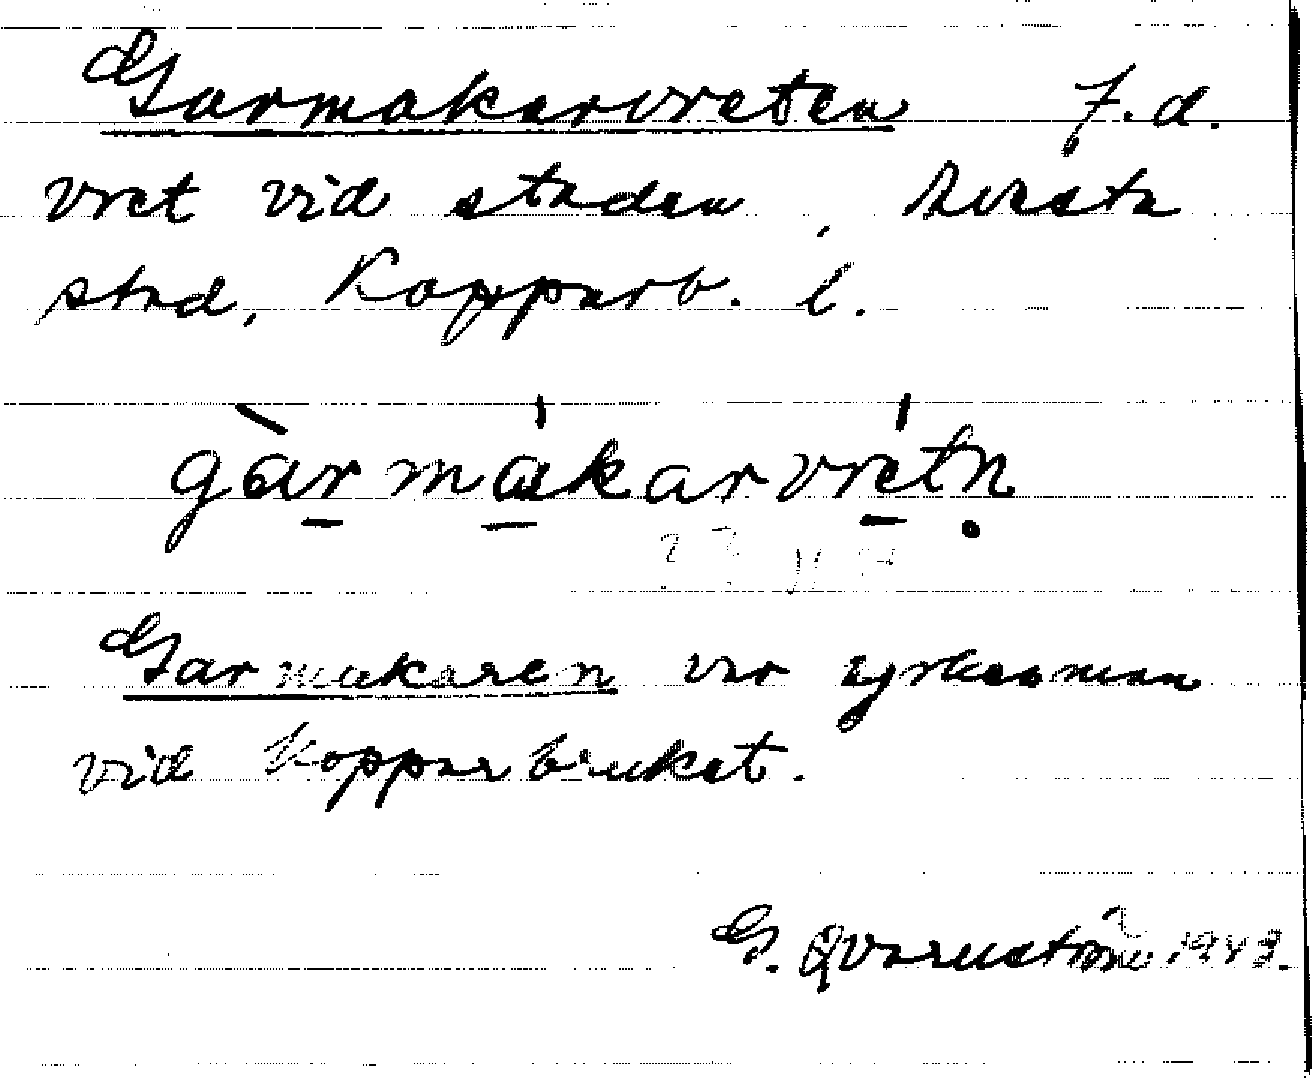 Garmakarvreten f.d.
vret vid staden, Avesta
stad, Kopparb. l.
gàrmákarvrétn
Garmakaren var yrkesman
vid kopparbruket.
G. Qvarnström 1943.